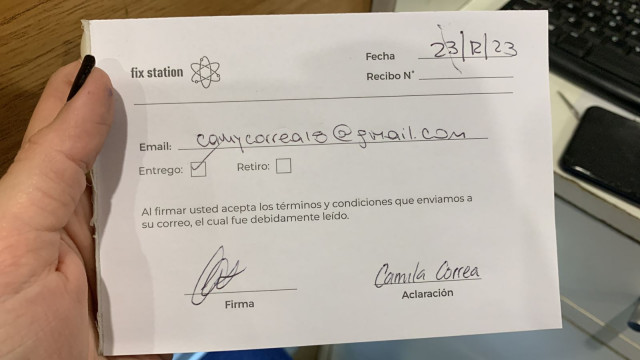 fix station
Fecha 23/12/23
Recibo N°
Email: camycorrea18@gmail.com
Entrego: ☑ Retiro: ☐
Al firmar usted acepta los términos y condiciones que enviamos a
su correo, el cual fue debidamente leído.
Camila Correa
Firma Aclaración